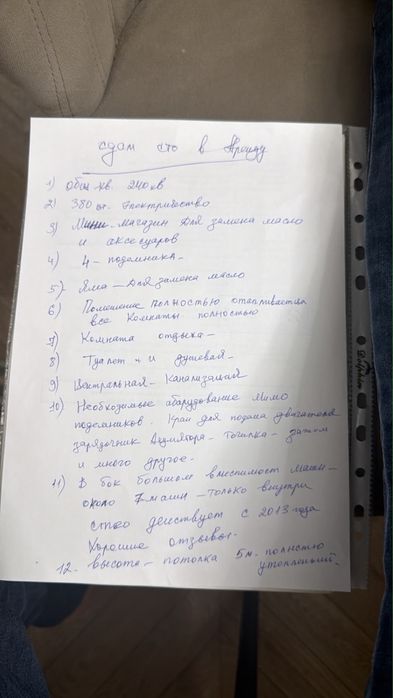 сдам сто в Аренду
1) общ кв. 240кв
2) 380 вт. Электричество
3) Мини-магазин Для замена масло
и аксесуаров
4) 4 - подемника -
5) Яма - Для замена масло
6) Помешение полностью отапливается
все комнаты полностью
7) Комната отдыха -
8) Туалет - и душевая -
9) Центральная - Канализация
10) Необходимые оборудование мимо
подемников. Кран для двигателя
зарядочник - Точилка -
и много другое -
11) В бок большом вместимост машин -
около 7 машин - только внутри
сто действует с 2013 года
Хорошие отзывы -
12. высота - потолка 5м. полностю
утепленний.
Dolphin